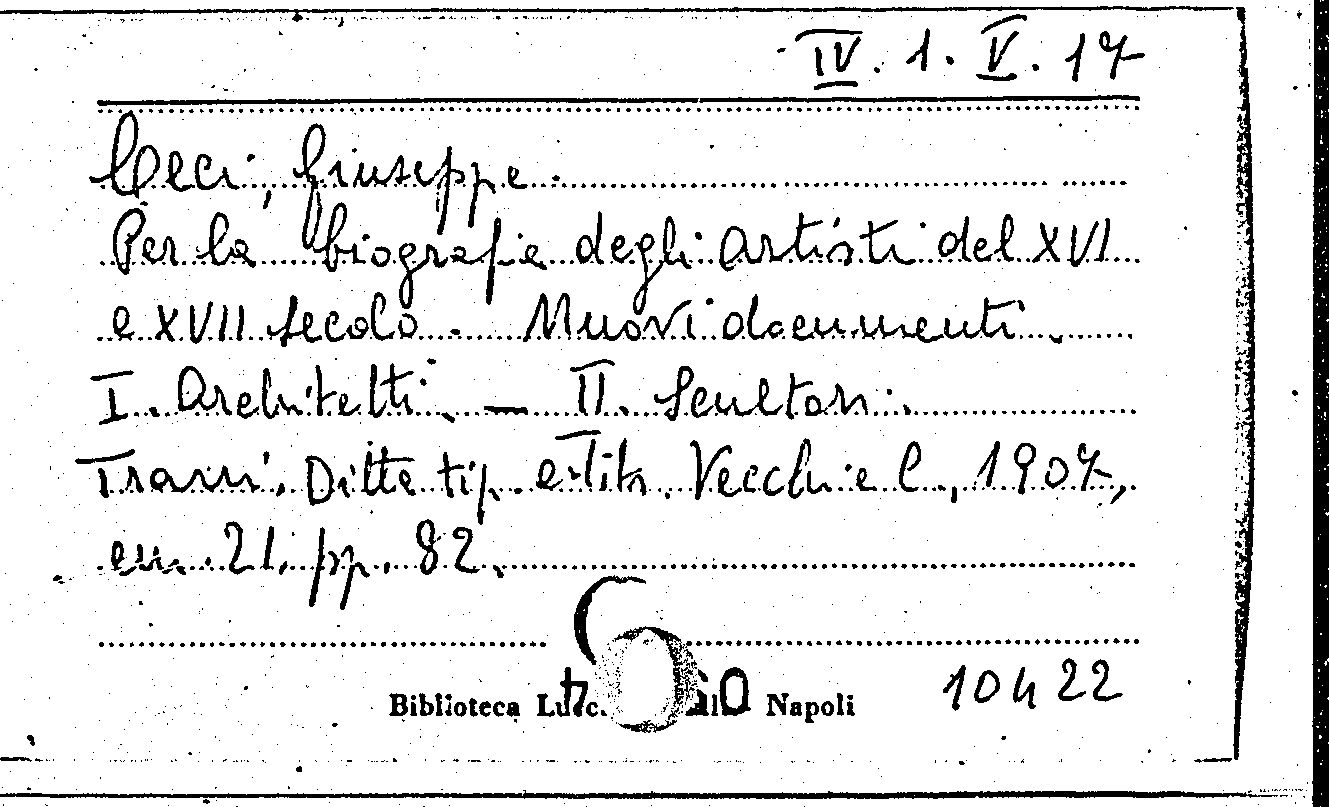 IV. 1. V. 17
Ceci, Giuseppe.
Per la biografia degli artisti del XVI
e XVII secolo. Nuovi documenti.
I. Architetti. — II. Scultori.
Trani, Ditta tip. edit. Vecchi e C., 1907,
cm. 21, pp. 82.
Biblioteca Napoli
10422